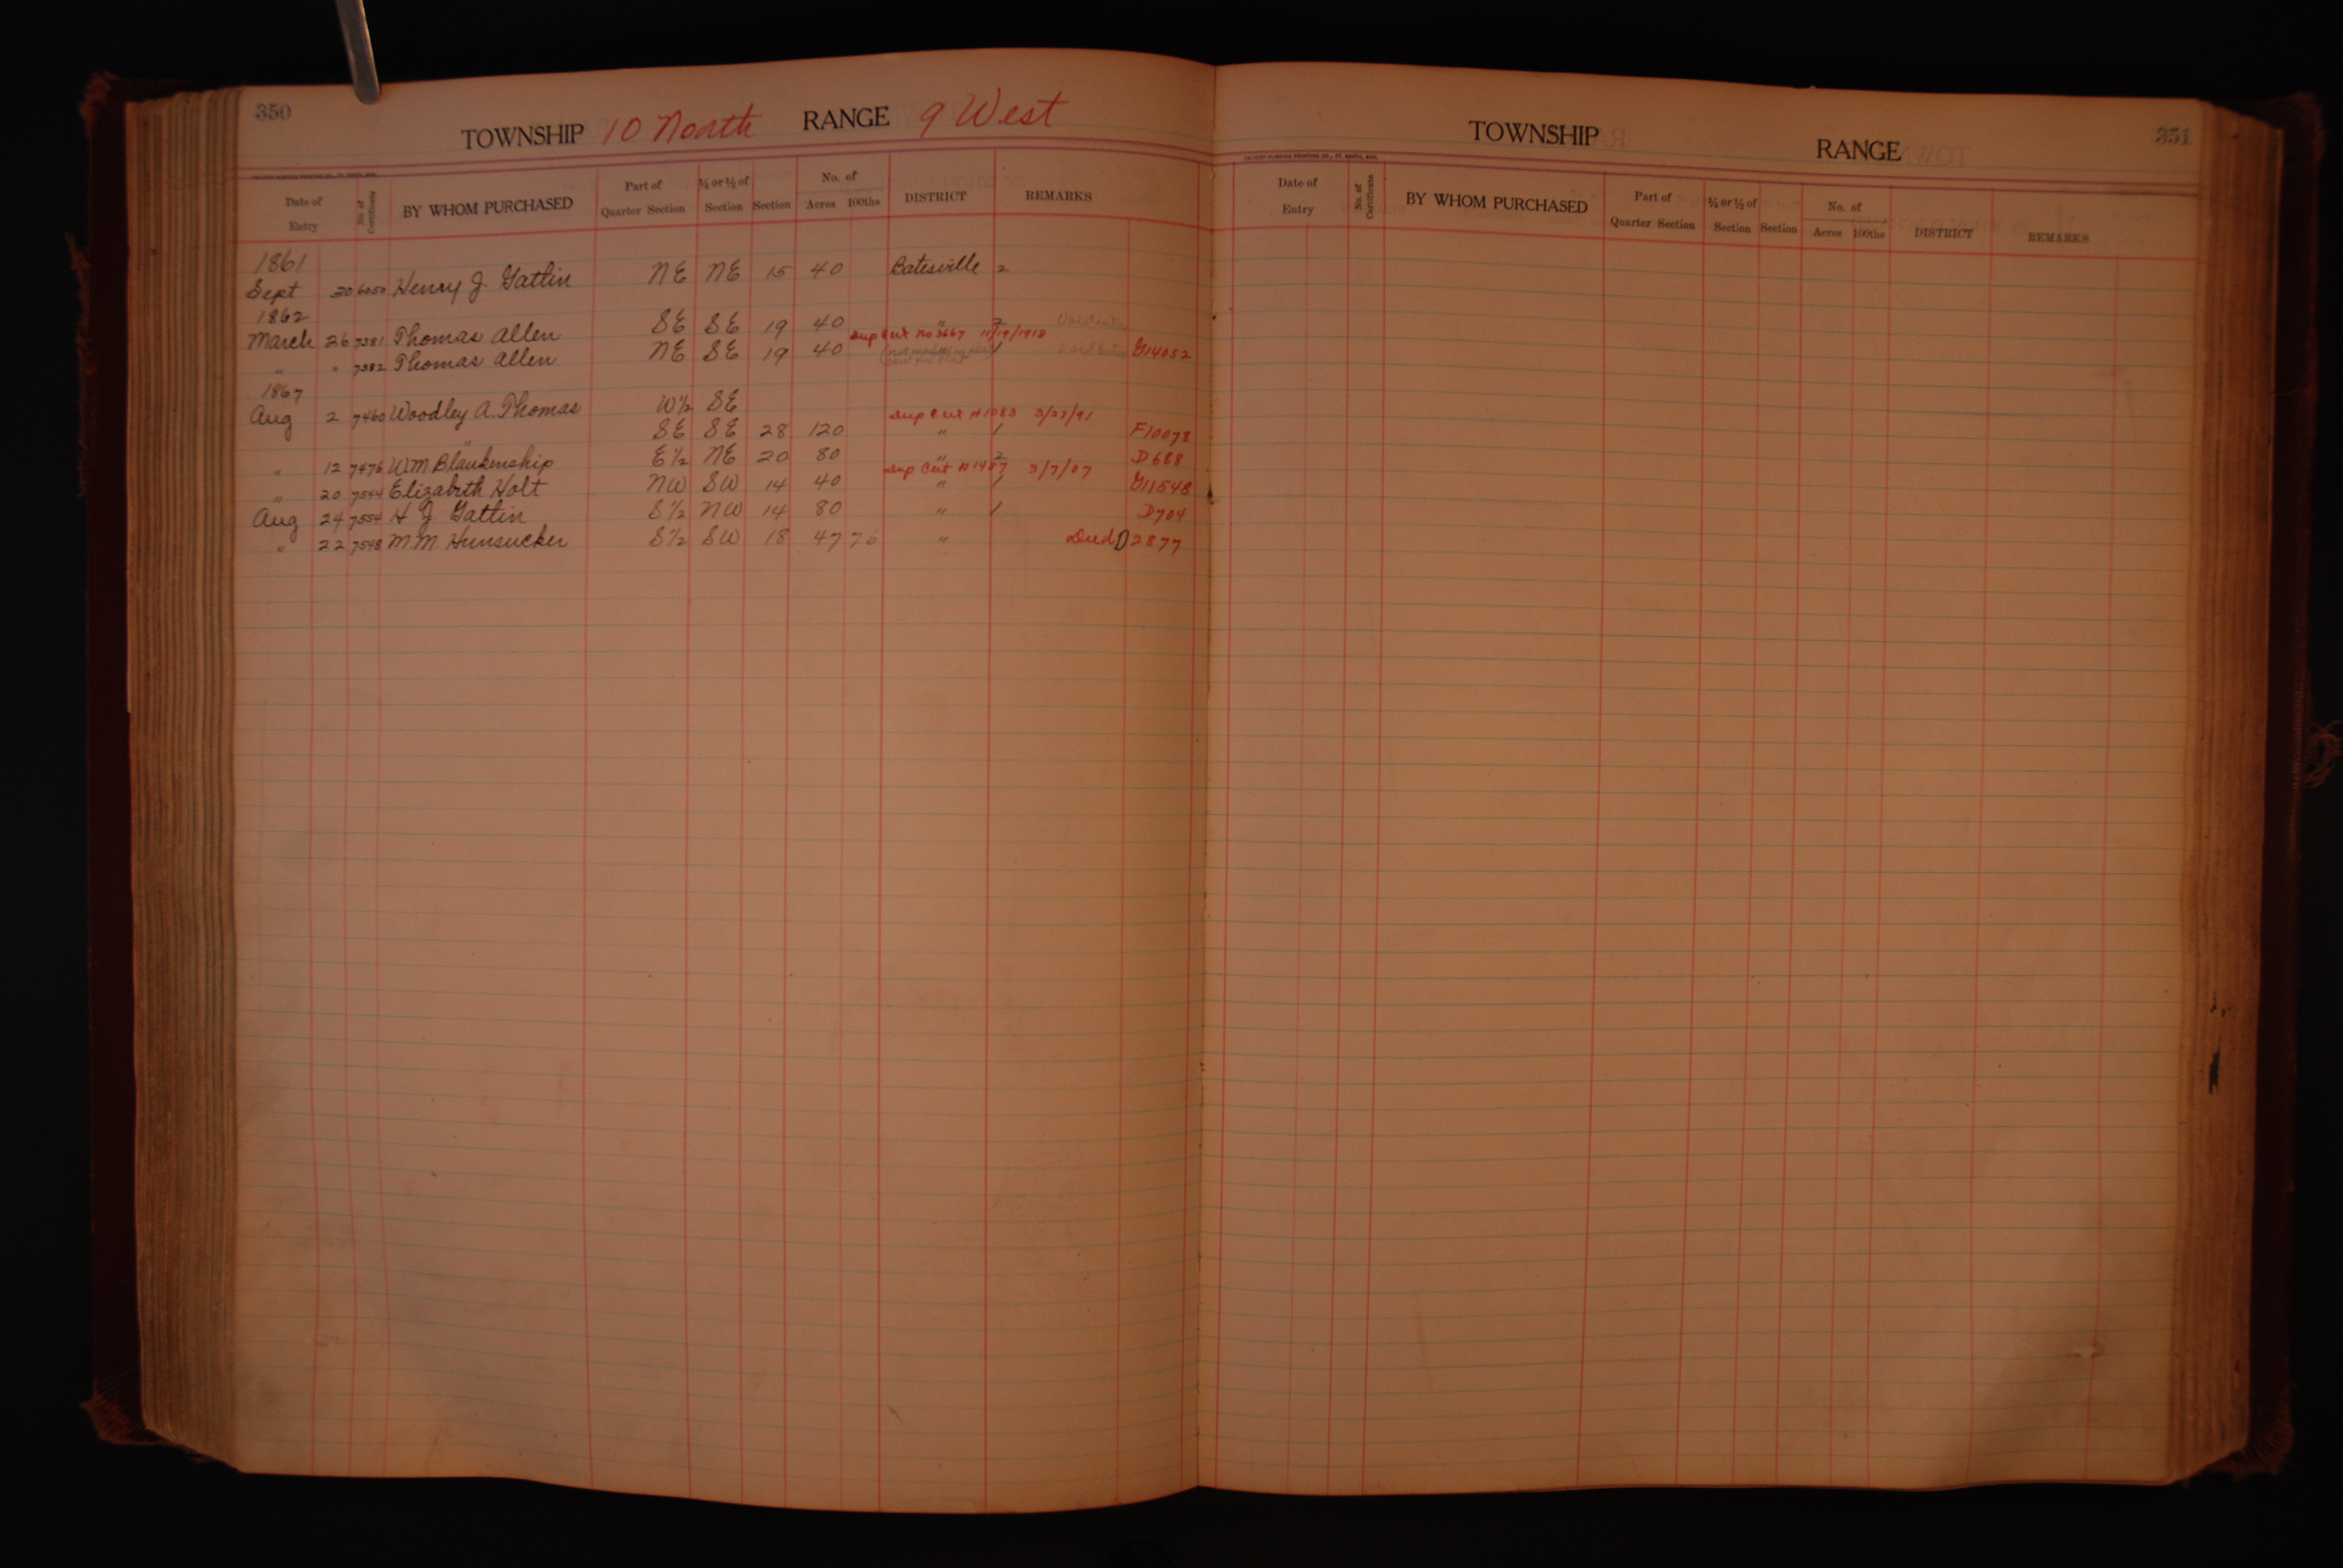 350
TOWNSHIP 10 North RANGE 9 West
Date of Entry No. of Certificate BY WHOM PURCHASED Part of Quarter Section ¼ or ½ of Section Section No. of Acres 100ths DISTRICT REMARKS
1861
Sept 20 6050 Henry J. Gattin NE NE 15 40 Batesville 2
1862
March 26 7381 Thomas Allen SE SE 19 40 " 2
Dup Cert No 3667 11/19/1910
" " 7382 Thomas Allen NE SE 19 40 1 G14052
1867
Aug 2 7460 Woodley A. Thomas W½ SE
Dup Cert # 1083 3/27/91
" SE SE 28 120 " 1 F10078
" 12 7476 W.M. Blankenship E½ NE 20 80 " 2 D688
Dup Cert # 1487 3/7/07
" 20 7544 Elizabeth Holt NW SW 14 40 " 1 G11548
Aug 24 7554 H J. Gattin S½ NW 14 80 " 1 D704
" 22 7548 M.M. Hunsucker S½ SW 18 47 76 " Dud D2877
TOWNSHIP RANGE 351
Date of Entry No. of Certificate BY WHOM PURCHASED Part of Quarter Section ¼ or ½ of Section Section No. of Acres 100ths DISTRICT REMARKS